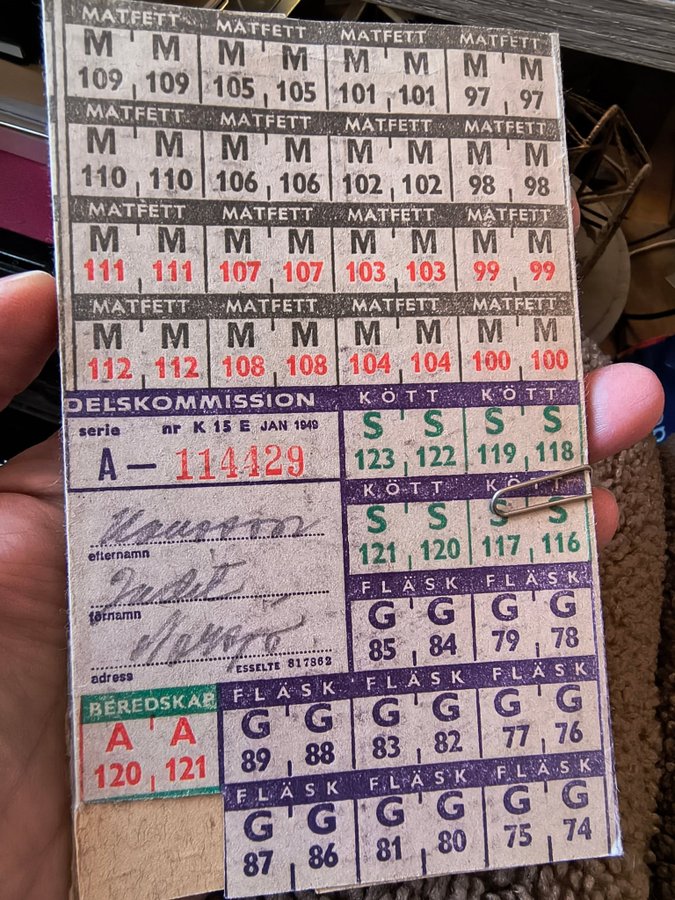 MATFETT MATFETT MATFETT MATFETT
M M M M M M M M
109 109 105 105 101 101 97 97
MATFETT MATFETT MATFETT MATFETT
M M M M M M M M
110 110 106 106 102 102 98 98
MATFETT MATFETT MATFETT MATFETT
M M M M M M M M
111 111 107 107 103 103 99 99
MATFETT MATFETT MATFETT MATFETT
M M M M M M M M
112 112 108 108 104 104 100 100
DELSKOMMISSION
serie nr K 15 E JAN 1949
A — 114429
efternamn
Judit
förnamn
adress ESSELTE 817862
KÖTT KÖTT
S S S S
123 122 119 118
KÖTT KÖTT
S S S S
121 120 117 116
FLÄSK FLÄSK
G G G G
85 84 79 78
BEREDSKAP
A A
120 121
FLÄSK FLÄSK FLÄSK
G G G G G G
89 88 83 82 77 76
FLÄSK FLÄSK FLÄSK
G G G G G G
87 86 81 80 75 74